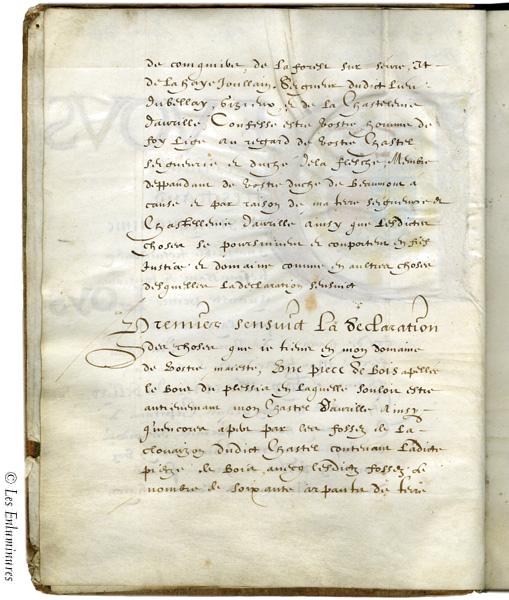 de comquive, de la forest sur serre, Et
de la haye Joullain, Seigneur dudict lieu
du bellay, gizieux, et de la Chastelenie
d'avrille Confesse estre vostre homme de
foy lige au regard de vostre Chastel
seigneurie et duche de la flesche Membre
deppendant de vostre duche de Beaumont a
cause et par raison de ma terre seigneurie et
Chastellenie d'avrille Ainsy que lesdictes
choses se poursuivent et comportent en fief
Justice et domaine comme en aultres choses
desquelles la declaration sensuict
Premier sensuict la declaration
des choses que ie tiens en mon domaine
de vostre maieste, Une piece de Bois apellee
le bois du plessis en laquelle souloit estre
antiennement mon Chastel d'avrille Ainsy
quencores apert par les fossez de la
clouaizon dudict Chastel contenant ladicte
pieze de bois, avecq lesdictz fossez le
nombre de soixante arpantz de terre
© Les Enluminures